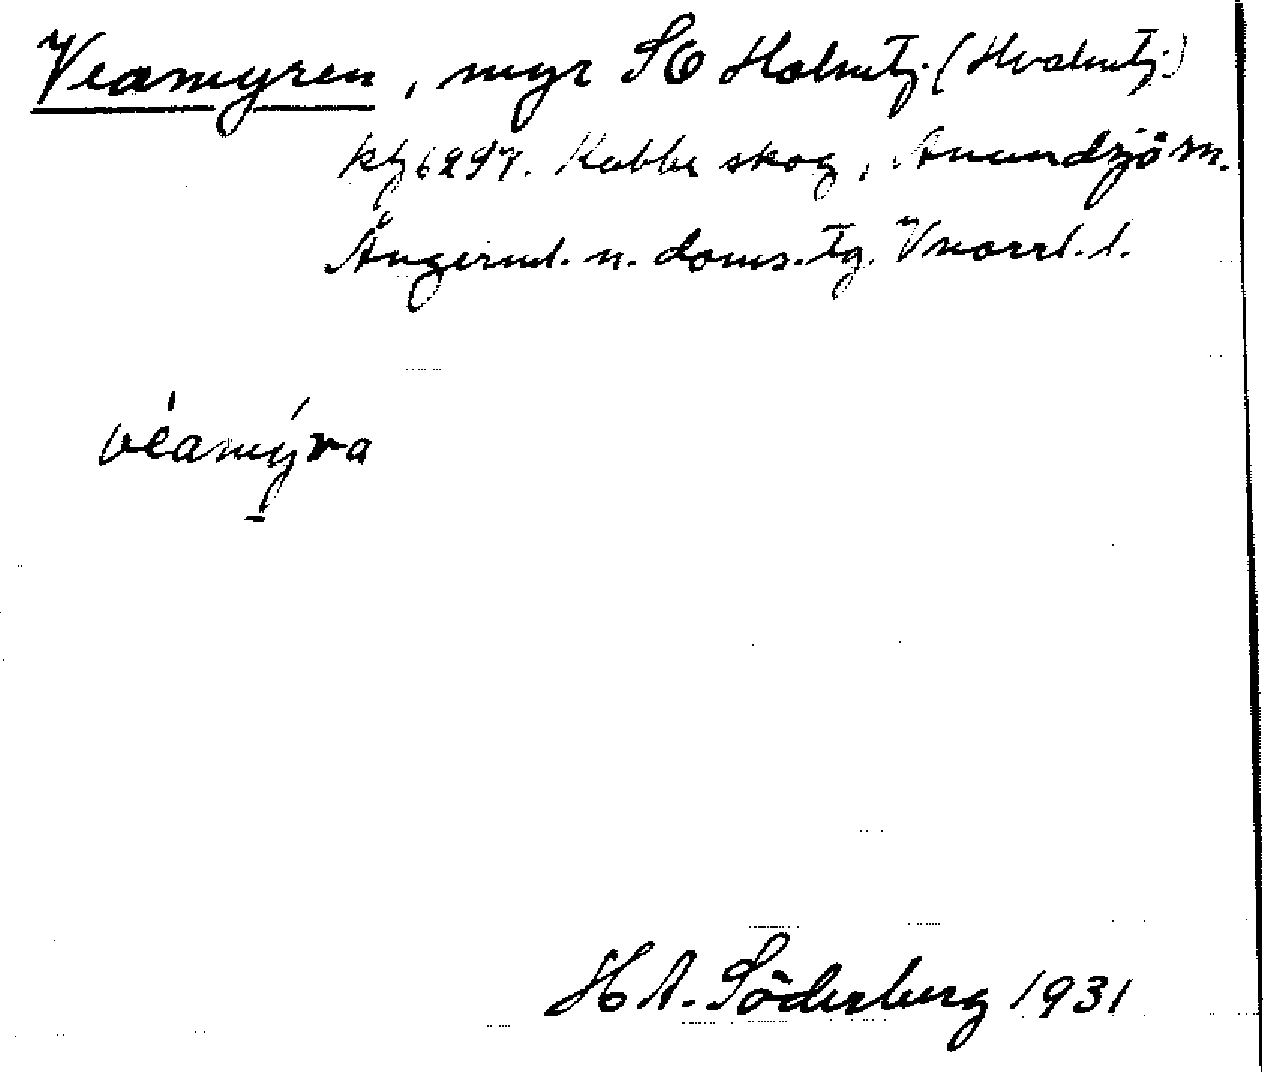 Veamyren, myr SO Holmtj. (Hvalmtj.)
kbl 6297. Kubbe skog, Anundsjö sn.
Ångerml. n. doms. tg. Vnorrl. l.
véamýra
H A. Söderberg 1931